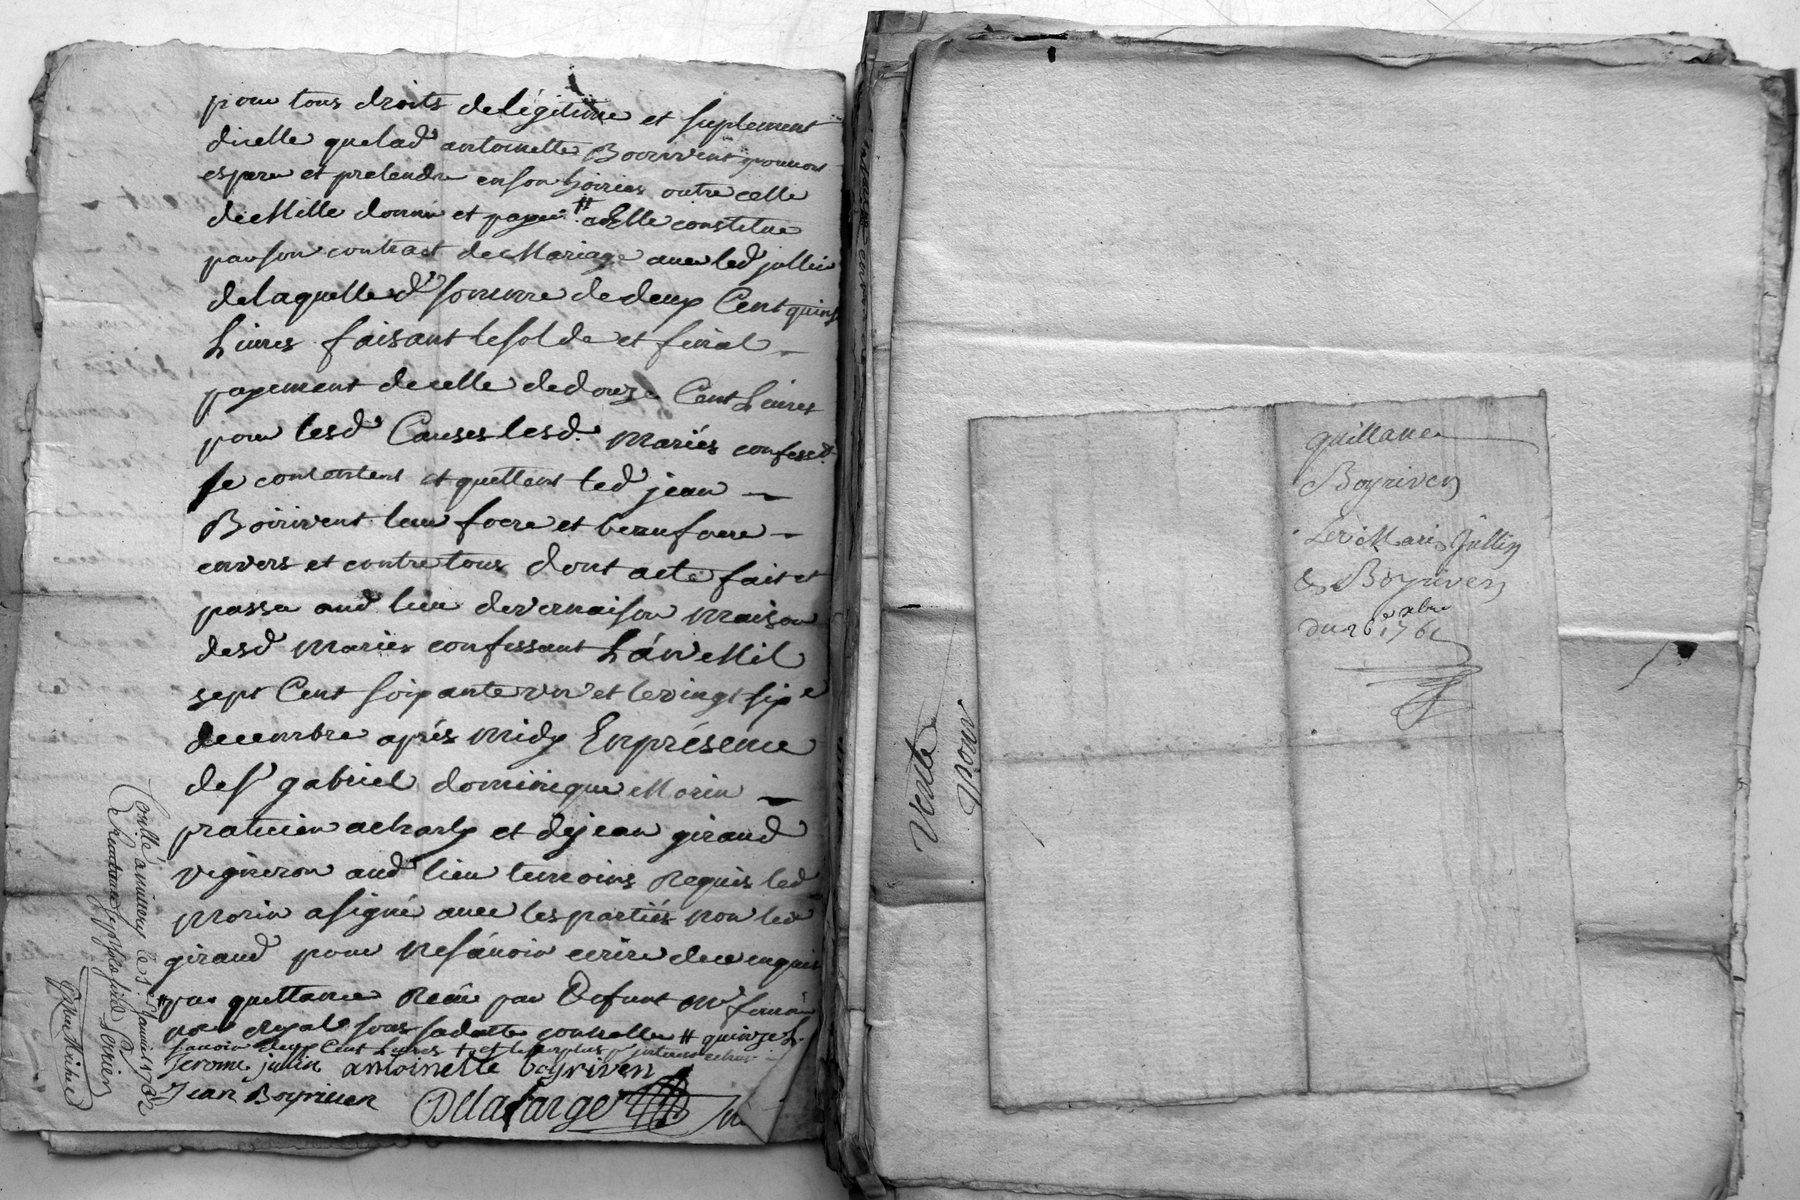 pour tous droits delégitime et suplement
dicelle quelad antoinette Boirivent pourroit
esperer et pretendre enson hoirie outre celle
demille donnée et payée # aelle constitue
parson contract demariage avec led jullin
delaquelle d somme dedeux Cent quinze
Livres faisant lesolde et final
payement decelle dedouze Cent Livres
pour lesd Causes lesd. mariés confess.
se contentent et quettent led jean
Boirivent leur frere et beaufrere
envers et contre tous dont acte fait et
passé aud lieu devernaison maison
desd mariés confessant L'an mil
sept Cent soixante un et levingt six e
decembre aprés midy Enprésence
desr gabriel dominique Morin
praticien acharly et dejean giraud
vigneron aud lieu temoins Requis led
Morin asigné avec les partiés non led
giraud pour nesavoir ecrire dece enquis
# par quittance Recue par Defunt Me
no. Royal sous sadatte controllée # quinze L.
savoir deux Cent Livres + et lesurplus p. interets echus
Jerome jullin antoinette boyriven
Jean Boyriven
Dellafarge
Conllé a le 1er janvier 1762
Recu
quittance
Boyriven
Les Maries Jullin
& Boyriven
du 26 e xbre 1761
Vente
pour